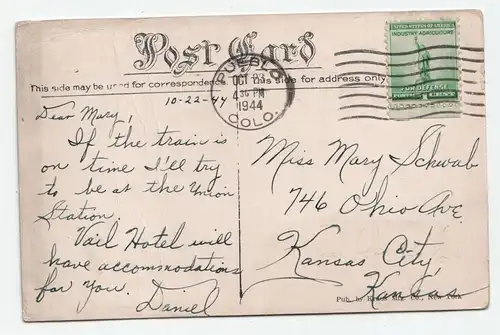 Post Card
This side may be used for correspondence
This side for address only
PUEBLO
OCT 23
4 30 PM
1944
COLO.
UNITED STATES OF AMERICA
INDUSTRY AGRICULTURE
FOR DEFENSE
POSTAGE
CENT
10-22-44
Dear Mary,
If the train is
on time I'll try
to be at the Union
Station.
Vail Hotel will
have accommodations
for you.
Daniel
Miss Mary Schwab
746 Ohio Ave.
Kansas City,
Kansas
Pub. by Mfg. Co., New York